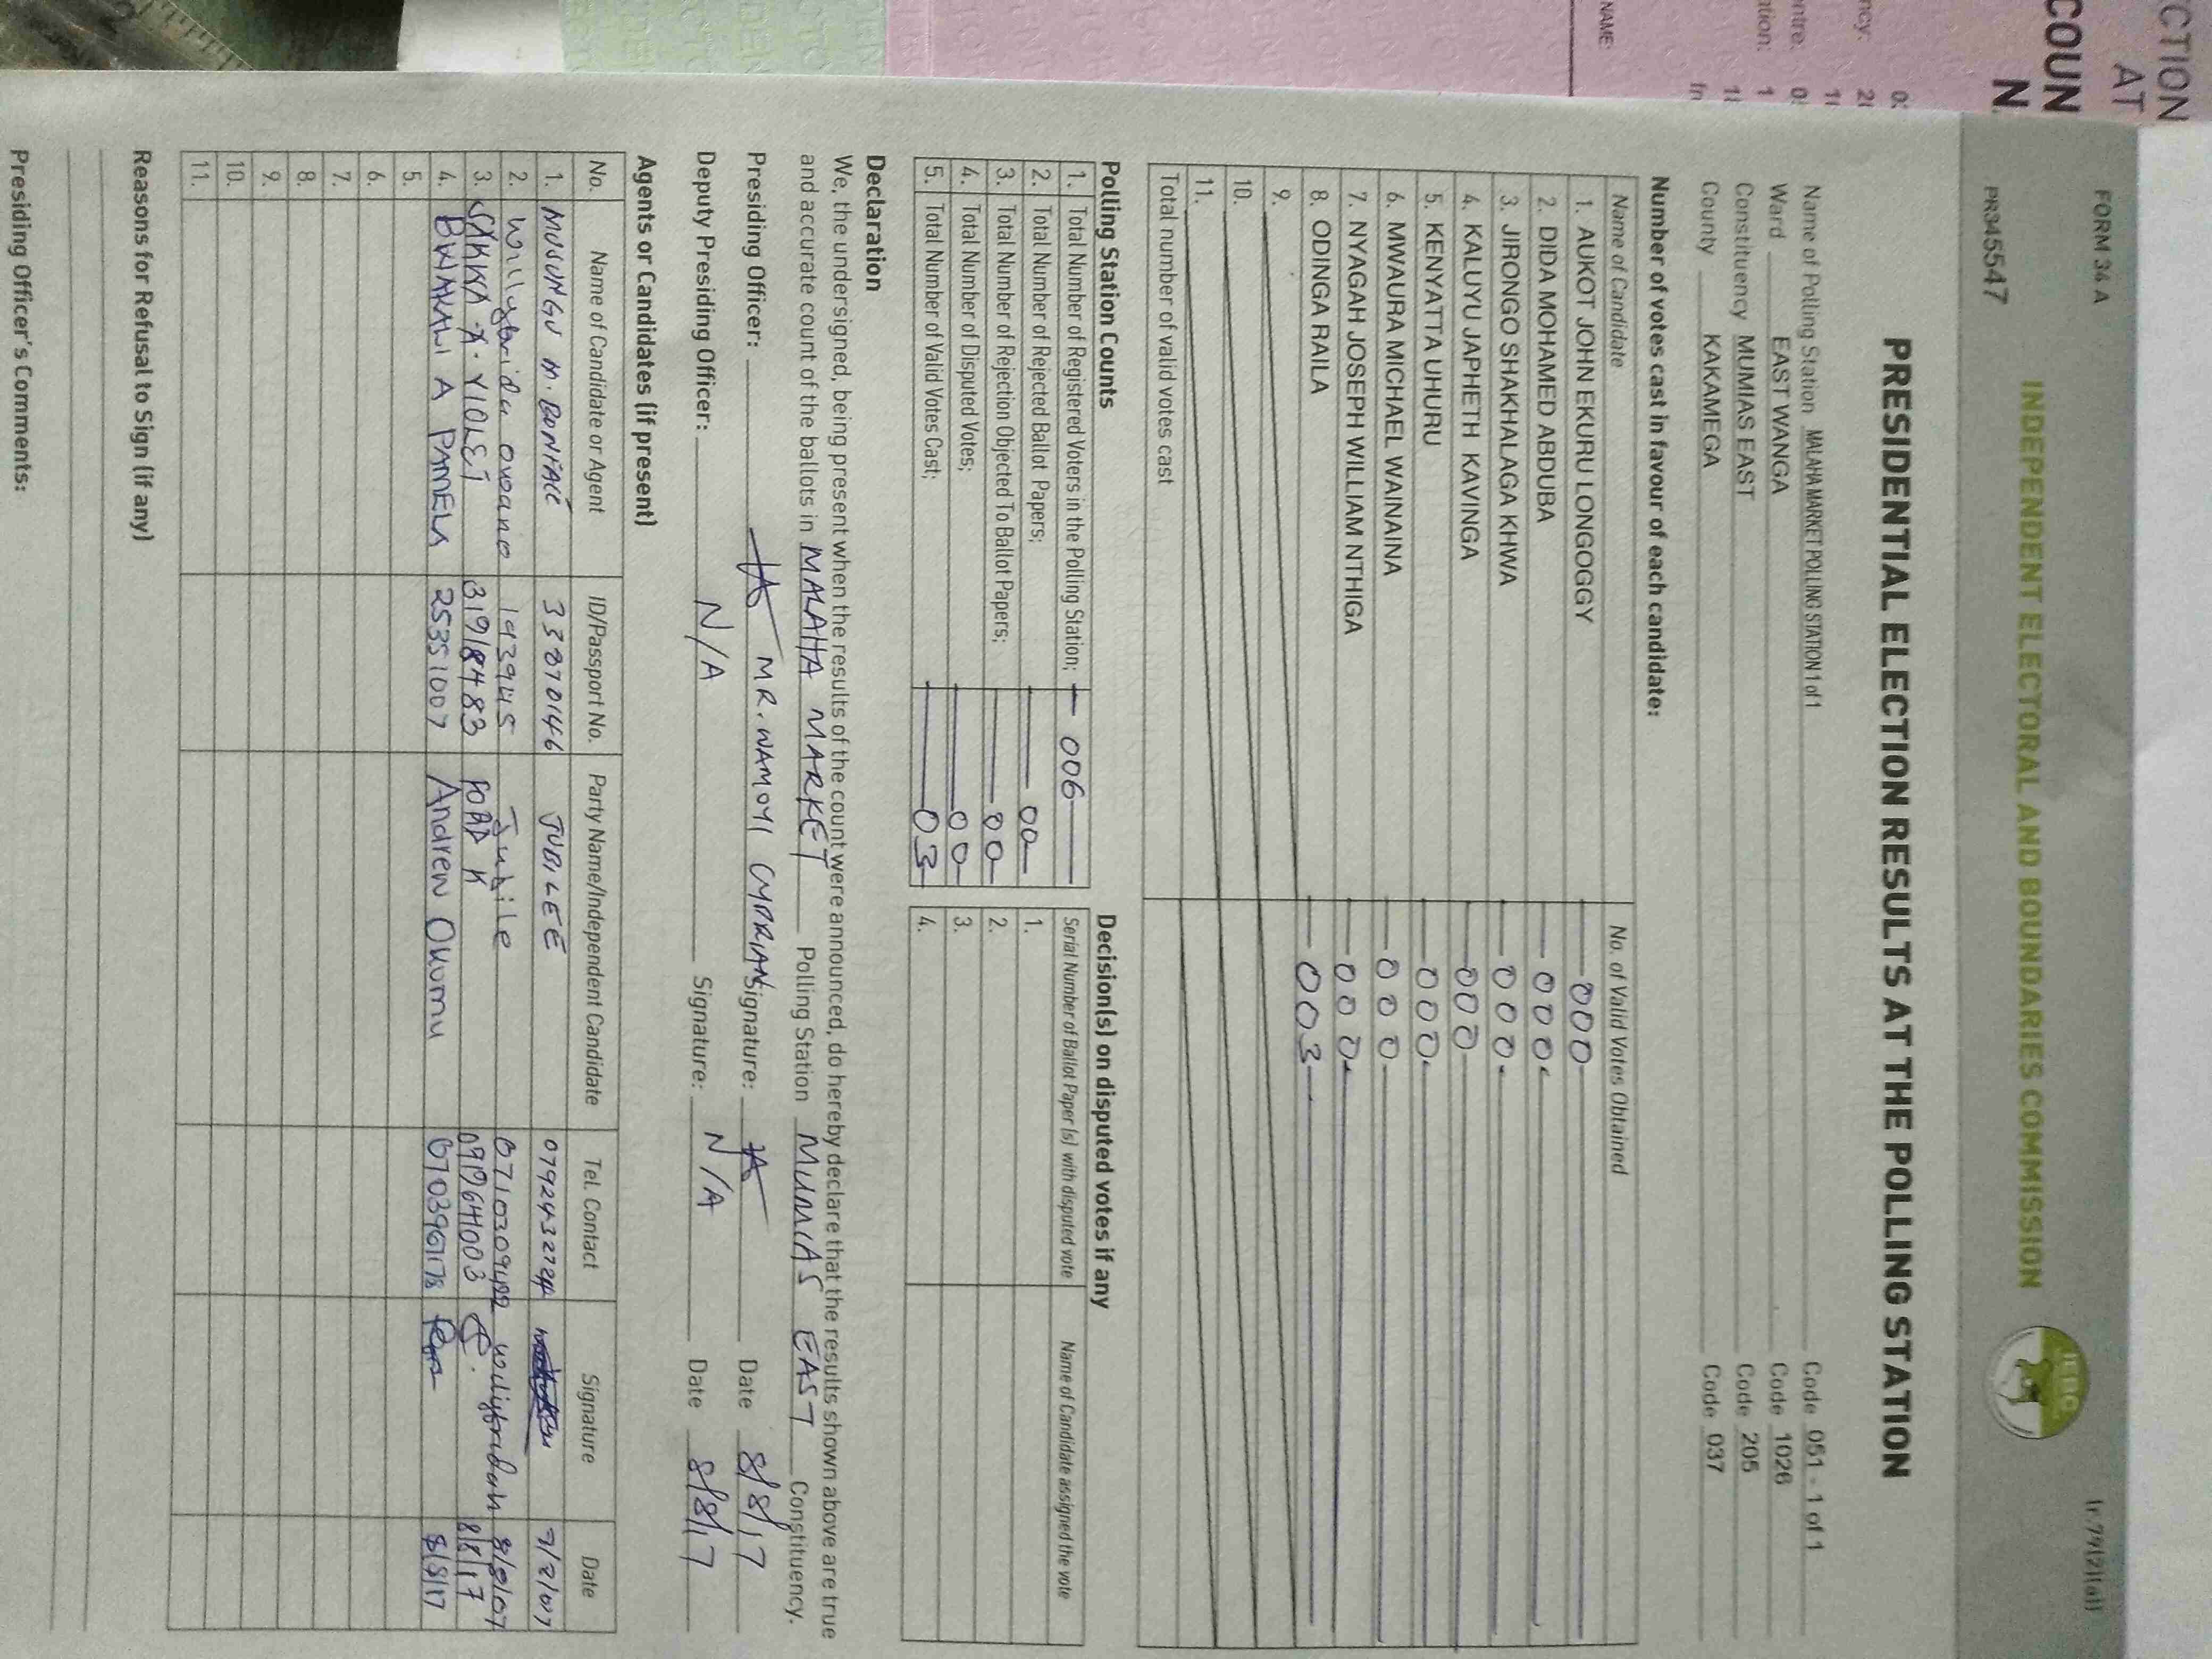 CTION
AT
COUN
N
NAME:
FORM 34 A
(r.79(2)(a))
INDEPENDENT ELECTORAL AND BOUNDARIES COMMISSION
IEBC
PR345547
PRESIDENTIAL ELECTION RESULTS AT THE POLLING STATION
Name of Polling Station MALAHA MARKET POLLING STATION 1 of 1 Code 051 - 1 of 1
Ward EAST WANGA Code 1026
Constituency MUMIAS EAST Code 205
County KAKAMEGA Code 037
Number of votes cast in favour of each candidate:
Name of Candidate No. of Valid Votes Obtained
1. AUKOT JOHN EKURU LONGOGGY 000
2. DIDA MOHAMED ABDUBA 000
3. JIRONGO SHAKHALAGA KHWA 000
4. KALUYU JAPHETH KAVINGA 000
5. KENYATTA UHURU 000
6. MWAURA MICHAEL WAINAINA 000
7. NYAGAH JOSEPH WILLIAM NTHIGA 000
8. ODINGA RAILA 003
9.
10.
11.
Total number of valid votes cast
Polling Station Counts
1. Total Number of Registered Voters in the Polling Station; 006
2. Total Number of Rejected Ballot Papers; 00
3. Total Number of Rejection Objected To Ballot Papers; 00
4. Total Number of Disputed Votes; 00
5. Total Number of Valid Votes Cast; 03
Decision(s) on disputed votes if any
Serial Number of Ballot Paper (s) with disputed vote Name of Candidate assigned the vote
1.
2.
3.
4.
Declaration
We, the undersigned, being present when the results of the count were announced, do hereby declare that the results shown above are true
and accurate count of the ballots in MALAHA MARKET Polling Station MUMIAS EAST Constituency.
Presiding Officer: MR. WAMOYI CYPRIAN Signature: Date 8/8/17
Deputy Presiding Officer: N/A Signature: N/A Date 8/8/17
Agents or Candidates (if present)
No. Name of Candidate or Agent ID/Passport No. Party Name/Independent Candidate Tel. Contact Signature Date
1. MUSUNGU M. BONFACE 33870146 JUBILEE
2. Willybrida 193945 Jubile 8/8/07
3. VIOLET 31918483 FORD K 8/8/17
4. BWAKALI A PAMELA 25351007 Andrew Okumu 8/8/17
5.
6.
7.
8.
9.
10.
11.
Reasons for Refusal to Sign (if any)
Presiding Officer's Comments: